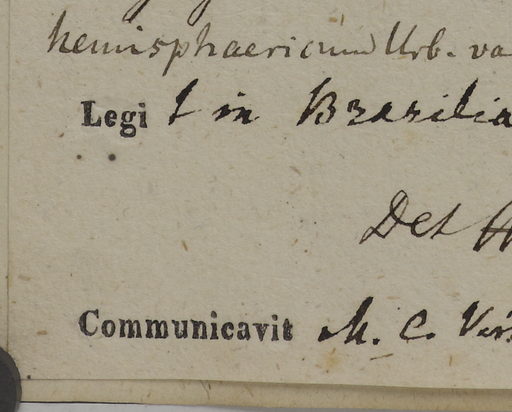 hemisphaericum Urb. va
Legit in Brasilia
Det
Communicavit M. C.